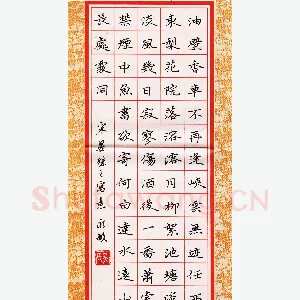 油壁香車不再逢峽雲無跡任西
東梨花院落溶溶月柳絮池塘淡
淡風幾日寂寥傷酒後一番蕭索
禁煙中魚書欲寄何由達水遠山
長處處同
宋晏殊之寓意